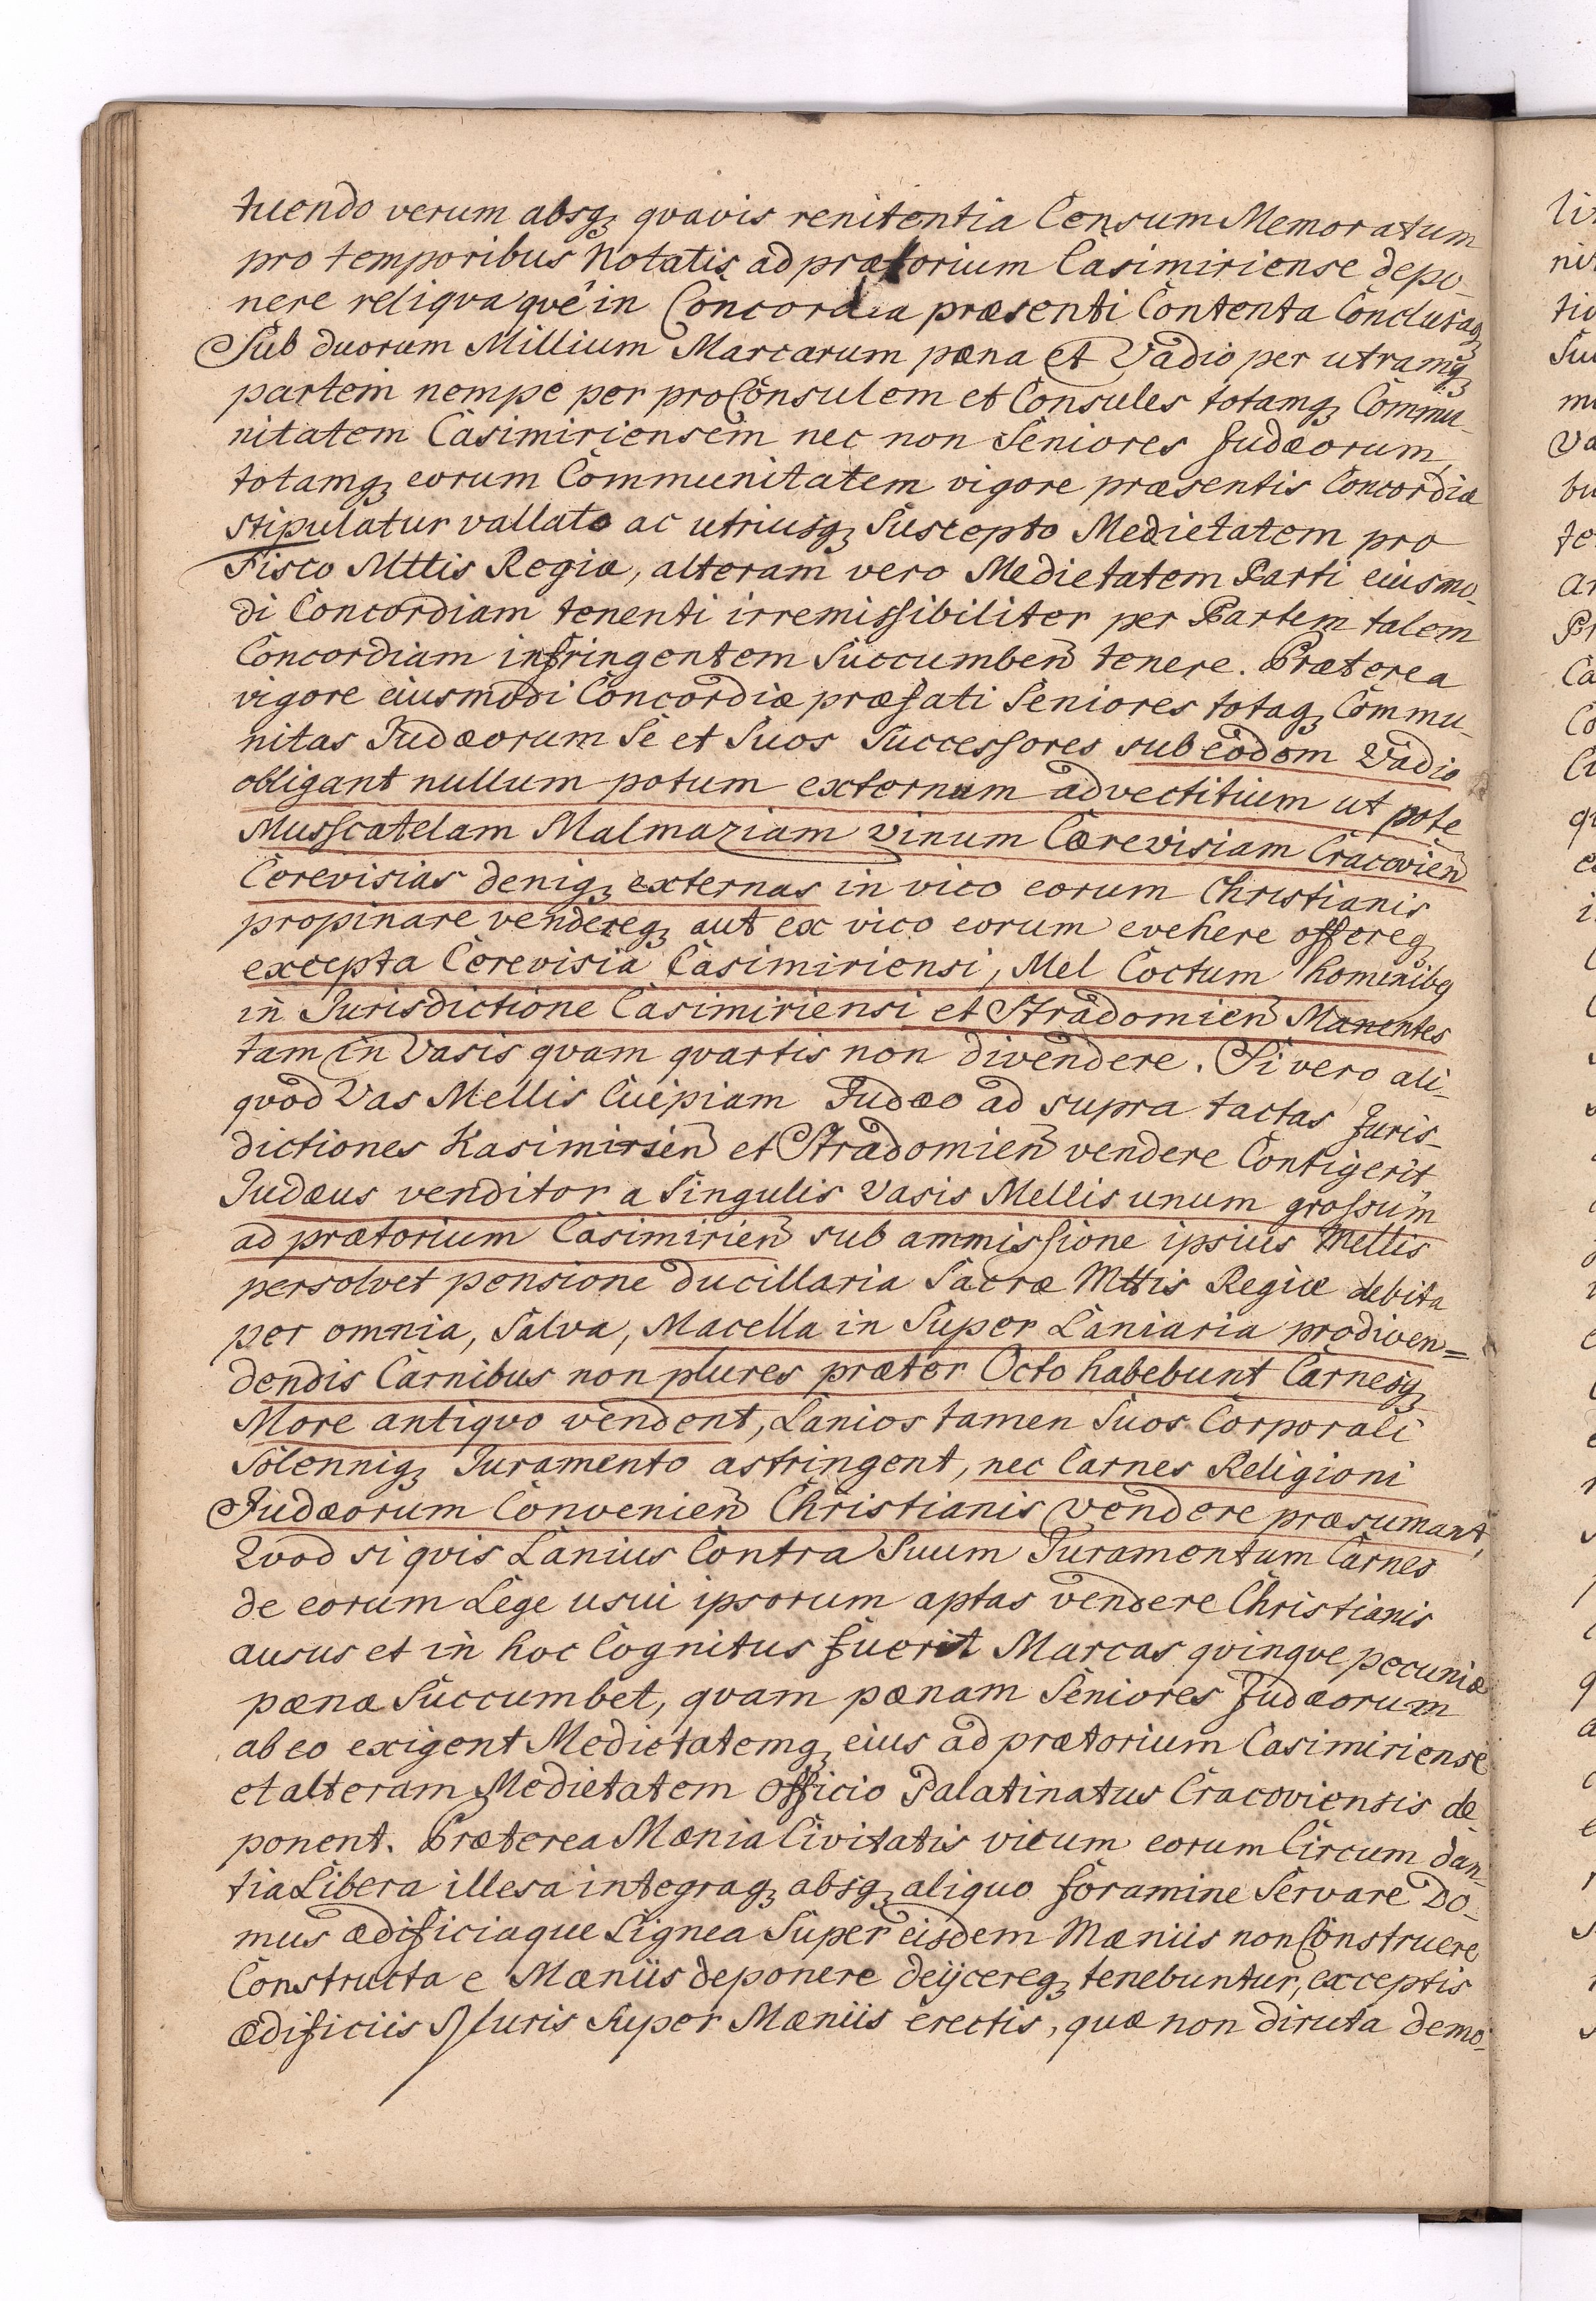 tuendo verum absq, qvavis renitentia Censum Memoratum
pro temporibus Notatis ad prætorium Casimiriense depo-
nere reliqva qvè in Concordia præsenti Contenta Conclusaq,
Sub duorum Millium Marcarum pæna et Vadio per utramq,
partem nempe per proConsulem et Consules totamq, Commu-
nitatem Casimiriensem nec non Seniores Judæorum
totamq, eorum Communitatem vigore præsentis Concordiæ
stipulatur vallato ac utriusq, Suscepto Medietatem pro
Fisco Mttis Regiæ, alteram vero Medietatem Parti eiusmo-
di Concordiam tenenti irremissibiliter per Partem talem
Concordiam infringentem Succumben tenere. Præterea
vigore eiusmodi Concordiæ præfati Seniores totaq, Commu-
nitas Judæorum Se et Suos Successores sub eodem Vadio
obligant nullum potum externum advectitium ut pote
Musscatelam Malmaziam vinum Cærevisiam Cracovien
Cerevisias deniq, externas in vico eorum Christianis
propinare vendereq, aut ex vico eorum evehere offereq,
excepta Cerevisia Casimiriensi, Mel Coctum hominibq
in Jurisdictione Casimiriensi et Stradomien Manentes
tam in Vasis qvam qvartis non divendere. Si vero ali-
qvod Vas Mellis Cuipiam Judæo ad supra tactas Juris-
dictiones Kasimirien et Stradomien vendere Contigerit
Judæus venditor a Singulis Vasis Mellis unum grossum
ad prætorium Casimirien sub ammissione ipsius Mellis
persolvet pensione ducillaria Sacræ Mttis Regiæ debita
per omnia, Salva, Macella in Super Laniaria prodiven=
dendis Carnibus non plures præter Octo habebunt Carnesq,
More antiqvo vendent, Lanios tamen Suos Corporali
Solenniq, Juramento astringent, nec Carnes Religioni
Judæorum Convenien Christianis vendere præsumant,
Qvod si qvis Lanius Contra Suum Juramentum Carnes
de eorum Lege usui ipsorum aptas vendere Christianis
ausus et in hoc Cognitus fuerit Marcas qvinqve pecuniæ
pæna Succumbet, qvam pænam Seniores Judæorum
ab eo exigent Medietatemq, eius ad prætorium Casimiriense
et alteram Medietatem officio Palatinatus Cracoviensis de-
ponent. Præterea Mænia Civitatis vicum eorum Circum dan-
tia Libera illesa integraq, absq, aliquo foramine Servare Do-
mus ædificiaque Lignea Super eisdem Mæniis non Construere
Constructa e Mæniis deponere deijcereq, tenebuntur, exceptis
ædificiis Muris Super Mæniis erectis, quæ non diruta demo-